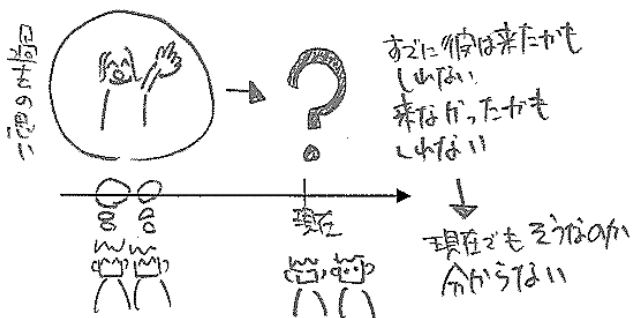 の思い
すでに彼は来たかも
しれない
来なかったかも
しれない
現在
現在でもそうなのか
分からない